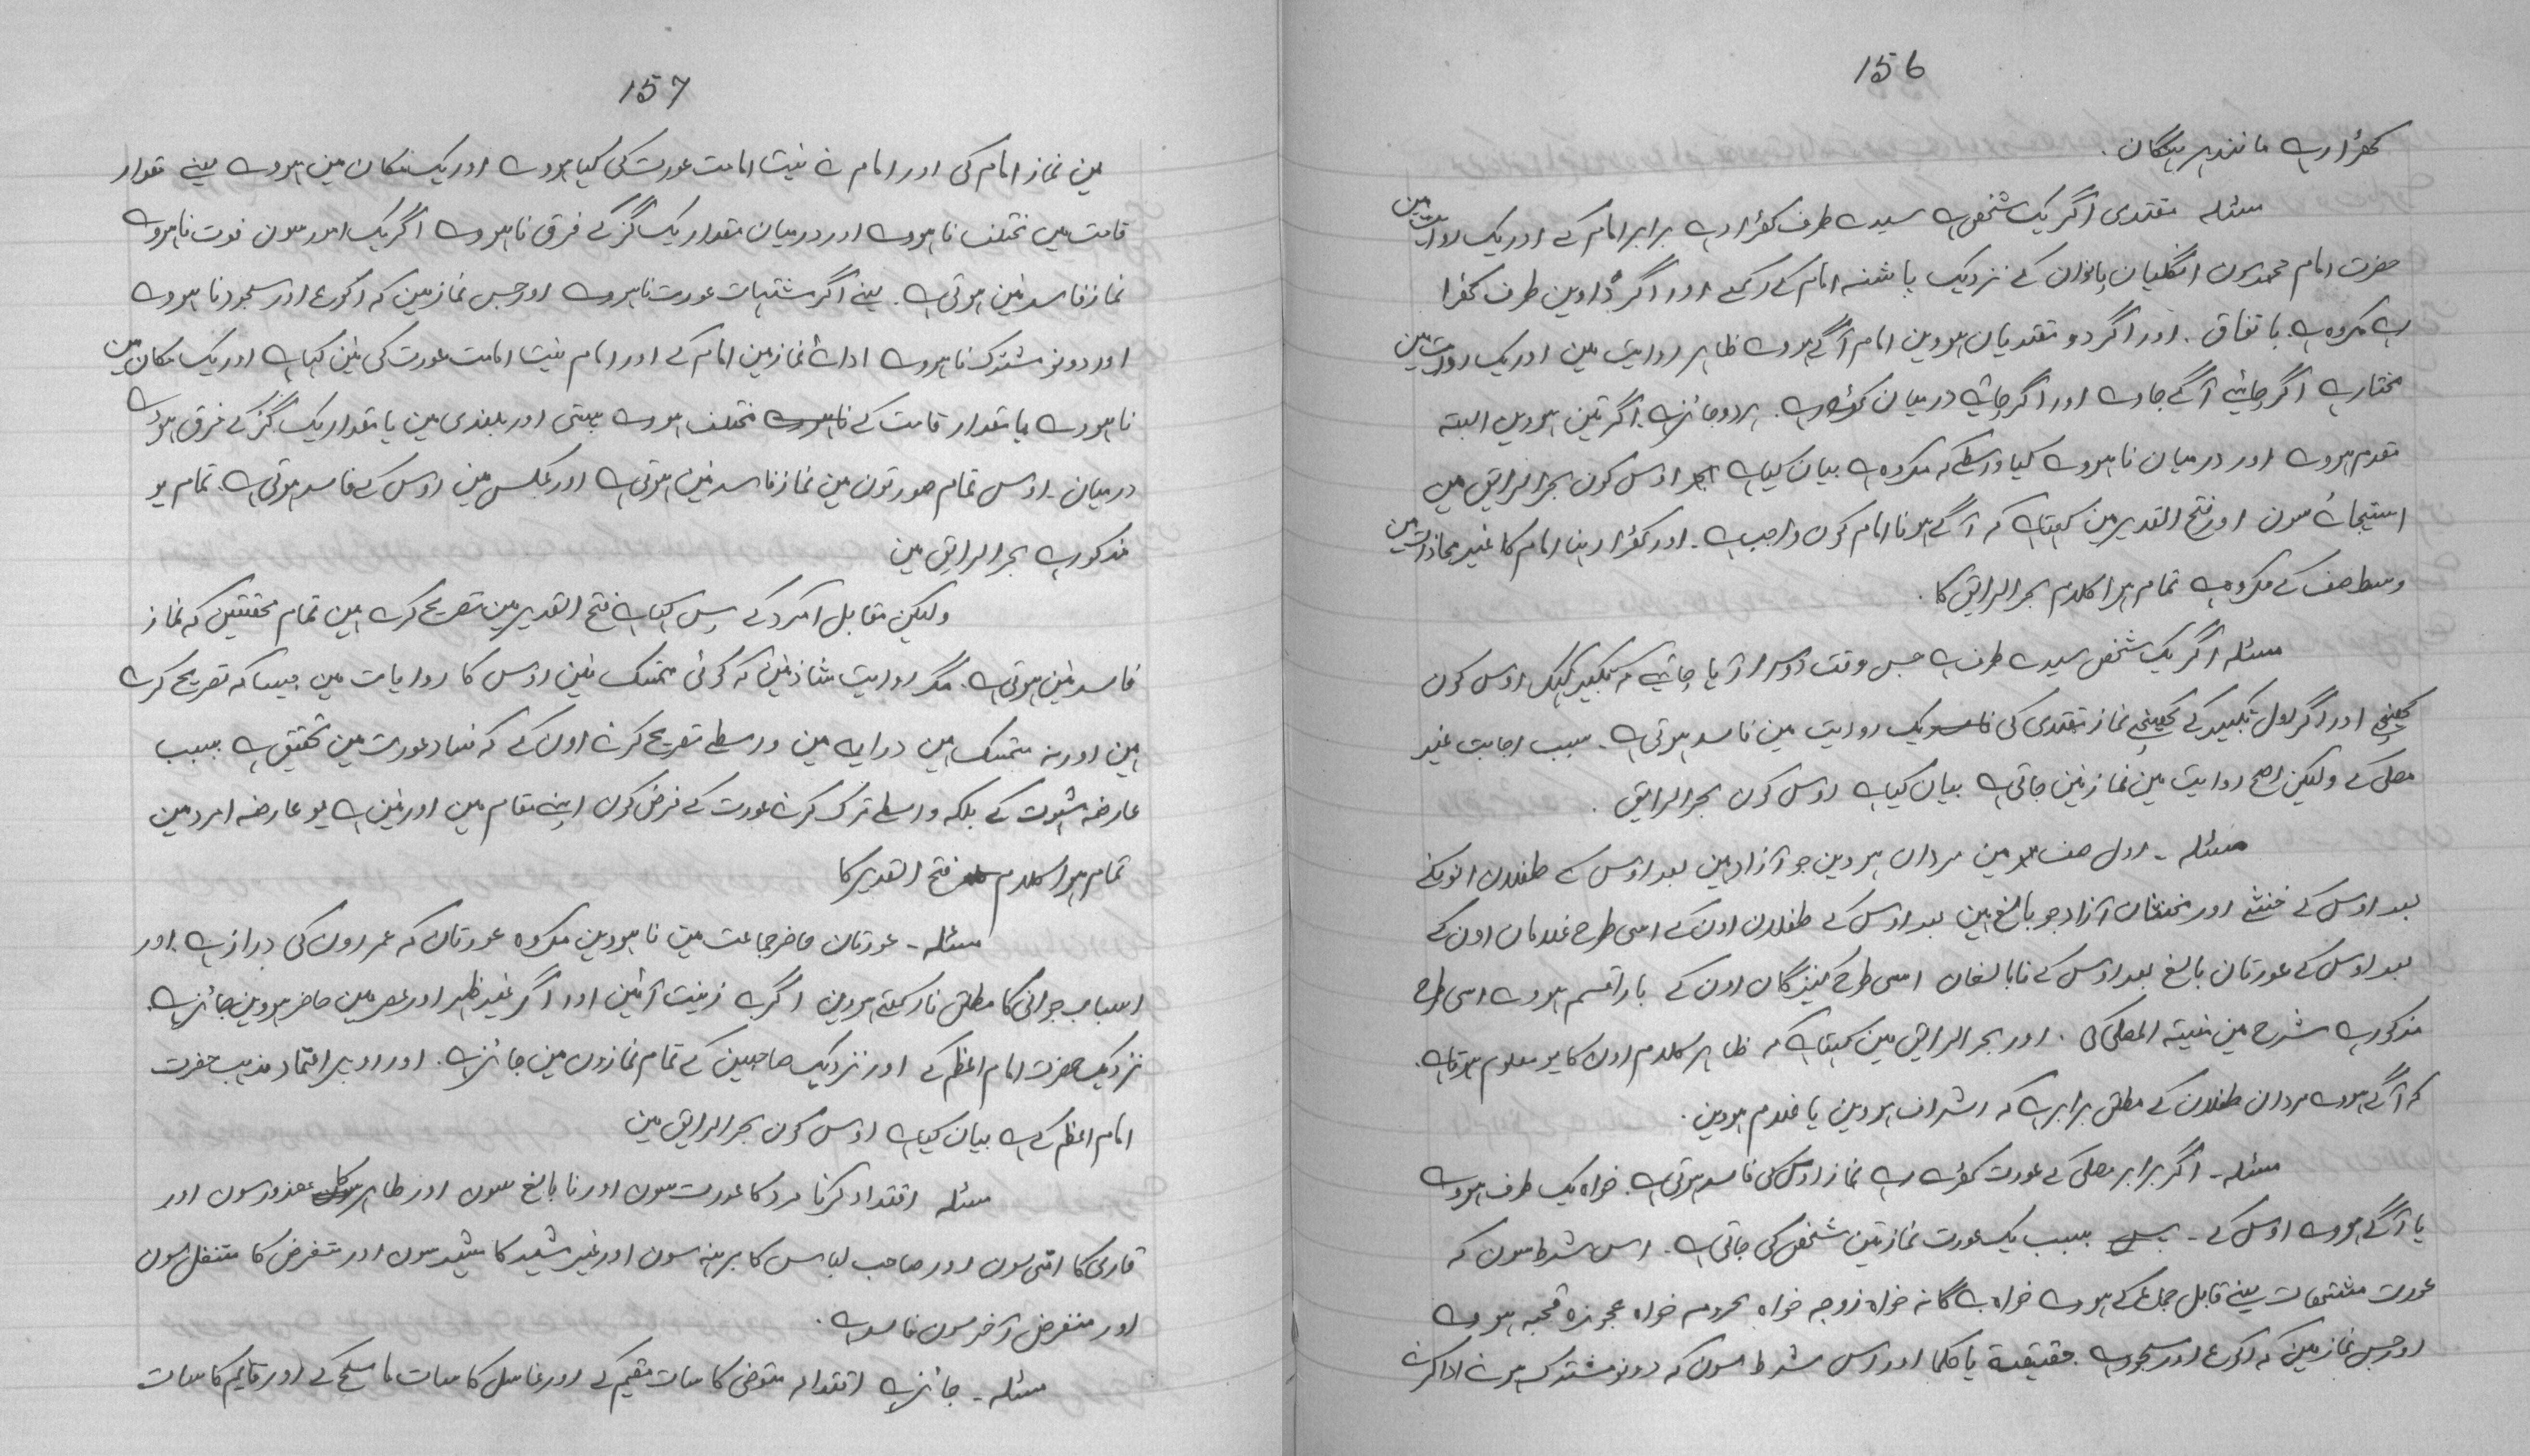 156
کھڑا رہے مانند بیگان.
مسئلہ مقتدی اگر یک شخص ہے سیدے طرف کھڑا رہے برابر امام کے اور یک روایت میں
حضرت امام محمد سون انگلیان پانوان کے نزدیک پاشنہ امام کے رکھے اور اگر ڈاوین طرف کھڑا
رہے مکروہ ہے باتفاق. اور اگر دو مقتدیان ہووین امام آگے ہووے ظاہر روایت مین اور یک روایت مین
مختار ہے اگر چاہے آگے جاوے اور اگر چاہے درمیان کھڑے رہے. ہردو جائز ہے. اگر تین ہووین البتہ
مقدم ہووے اور درمیان نا ہووے کیا واسطے کہ مکروہ ہے بیان کیا ہے اوس کون بحر الرایق مین
استیجاے سون اور فتح القدیر مین کہتا ہے کہ آگے ہونا امام کون واجب ہے. اور کھڑا رہنا امام کا غیر محاذات مین
وسط صف کے مکروہ ہے تمام ہوا کلام بحر الرایق کا.
مسئلہ اگر یک شخص سیدے طرف ہے جس وقت دوسرا آیا چاہیے کہ تکبیر کہکر اوس کون
کھینچے اور اگر اول تکبیر کے کھینچے نماز مقتدی کی یک روایت مین فاسد ہوتی ہے. بسبب اجابت غیر
مصلی کے ولیکن اصح روایت مین نماز نین جاتی ہے بیان کیا ہے اوس کون بحر الرایق.
مسئلہ۔ اول صف مین مردان ہووین جو آزاد ہین بعد اوس کے طفلان انوکے
بعد اوس کے خنثے اور مخنثان آزاد جو بالغ ہین بعد اوس کے طفلان اون کے اسی طرح غلامان اون کے
بعد اوس کے عورتان بالغ بعد اوس کے نابالغان اسی طرح کنیزگان اون کے بارا قسم ہووے اسی طرح
مذکور ہے شرح مین منیتہ المصلی کی. اور بحر الرایق مین کہتا ہے کہ ظاہر کلام اون کا یو معلوم ہوتا ہے.
کہ آگے ہووے مردان طفلان کے مطلق برابر ہے کہ اشراف ہووین یا غلام ہووین.
مسئلہ۔ اگر برابر مصلی کے عورت کھڑے رہے نماز اوس کی فاسد ہوتی ہے. خواہ یک طرف ہووے
یا آگے ہووے اوس کے۔ بسبب یک عورت نماز تین شخص کی جاتی ہے. اس شرط سون کہ
عورت مشتہات یعنے قابل جماع کے ہووے خواہ بیگانہ خواہ زوجہ خواہ محرم خواہ عجوزہ قحبہ ہووے
اور جس نماز مین کہ رکوع اور سجود ہے. حقیقة یا حکما اور اس شرط سون کہ دونو مشترک ہوے ادا کرنے
157
مین نماز امام کی اور امام نے نیت امامت عورت کی کیا ہووے اور یک مکان مین ہووے یعنے مقدار
قامت مین مختلف نا ہووے اور درمیان مقدار یک گز کے فرق نا ہووے اگر یک امور سون فوت نا ہووے
نماز فاسد نین ہوتی ہے. یعنے اگر مشتہات عورت نا ہووے اور جس نماز مین کہ رکوع اور سجود نا ہووے
اور دونو مشترک نا ہووے اداے نماز مین امام کے اور امام نیت امامت عورت کی نین کیا ہے اور یک مکان مین
نا ہووے یا مقدار قامت کے مختلف ہووے پستی اور بلندی مین یا مقدار یک گز کے فرق ہووے
درمیان. اوس تمام صورتون مین نماز فاسد نین ہوتی ہے اور عکس مین اوس کے فاسد ہوتی ہے. تمام یو
مذکور ہے بحر الرایق مین
ولیکن مقابل امرد کے پس کیا ہے فتح القدیر مین تصریح کرے ہین تمام محققین کہ نماز
فاسد نین ہوتی ہے. مگر روایت شاذ نین کہ کوئی متمسک نین اوس کا روایات مین جیسا کہ تصریح کرے
ہین اور نہ متمسک ہین درایہ مین واسطے تصریح کرنے اون کے کہ فساد عورت مین تحقیق ہے بسبب
عارضہ شہوت کے بلکہ واسطے ترک کرنے عورت کے فرض کون اپنے مقام مین اور نین ہے یو عارضہ امرد مین
تمام ہوا کلام فتح القدیر کا
مسئلہ۔ عورتان حاضر جماعت مین نا ہووین مکروہ عورتان کہ عمر اون کی دراز ہے. اور
اسباب جوانی کا مطلق نا رکھتے ہووین اگر بے زینت آئین اور اگر غیر ظہر اور عصر مین حاضر ہووین جائز ہے.
نزدیک حضرت امام اعظم کے اور نزدیک صاحبین کے تمام نمازون مین جائز ہے. اور اوپر اعتماد مذہب حضرت
امام اعظم کے ہے بیان کیا ہے اوس کون بحر الرایق مین
مسئلہ اقتداء کرنا مرد کا عورت سون اور نابالغ سون اور طاہر کا معذور سون اور
قاری کا امی سون اور صاحب لباس کا برہنہ سون اور غیر مشیر کا مشیر سون اور متفرض کا متنفل سون
اور متفرض آخر سون فاسد ہے.
مسئلہ۔ جائز ہے اقتداء متوضی کا سات متیمم کے اور غاسل کا سات ماسح کے اور قایم کا سات